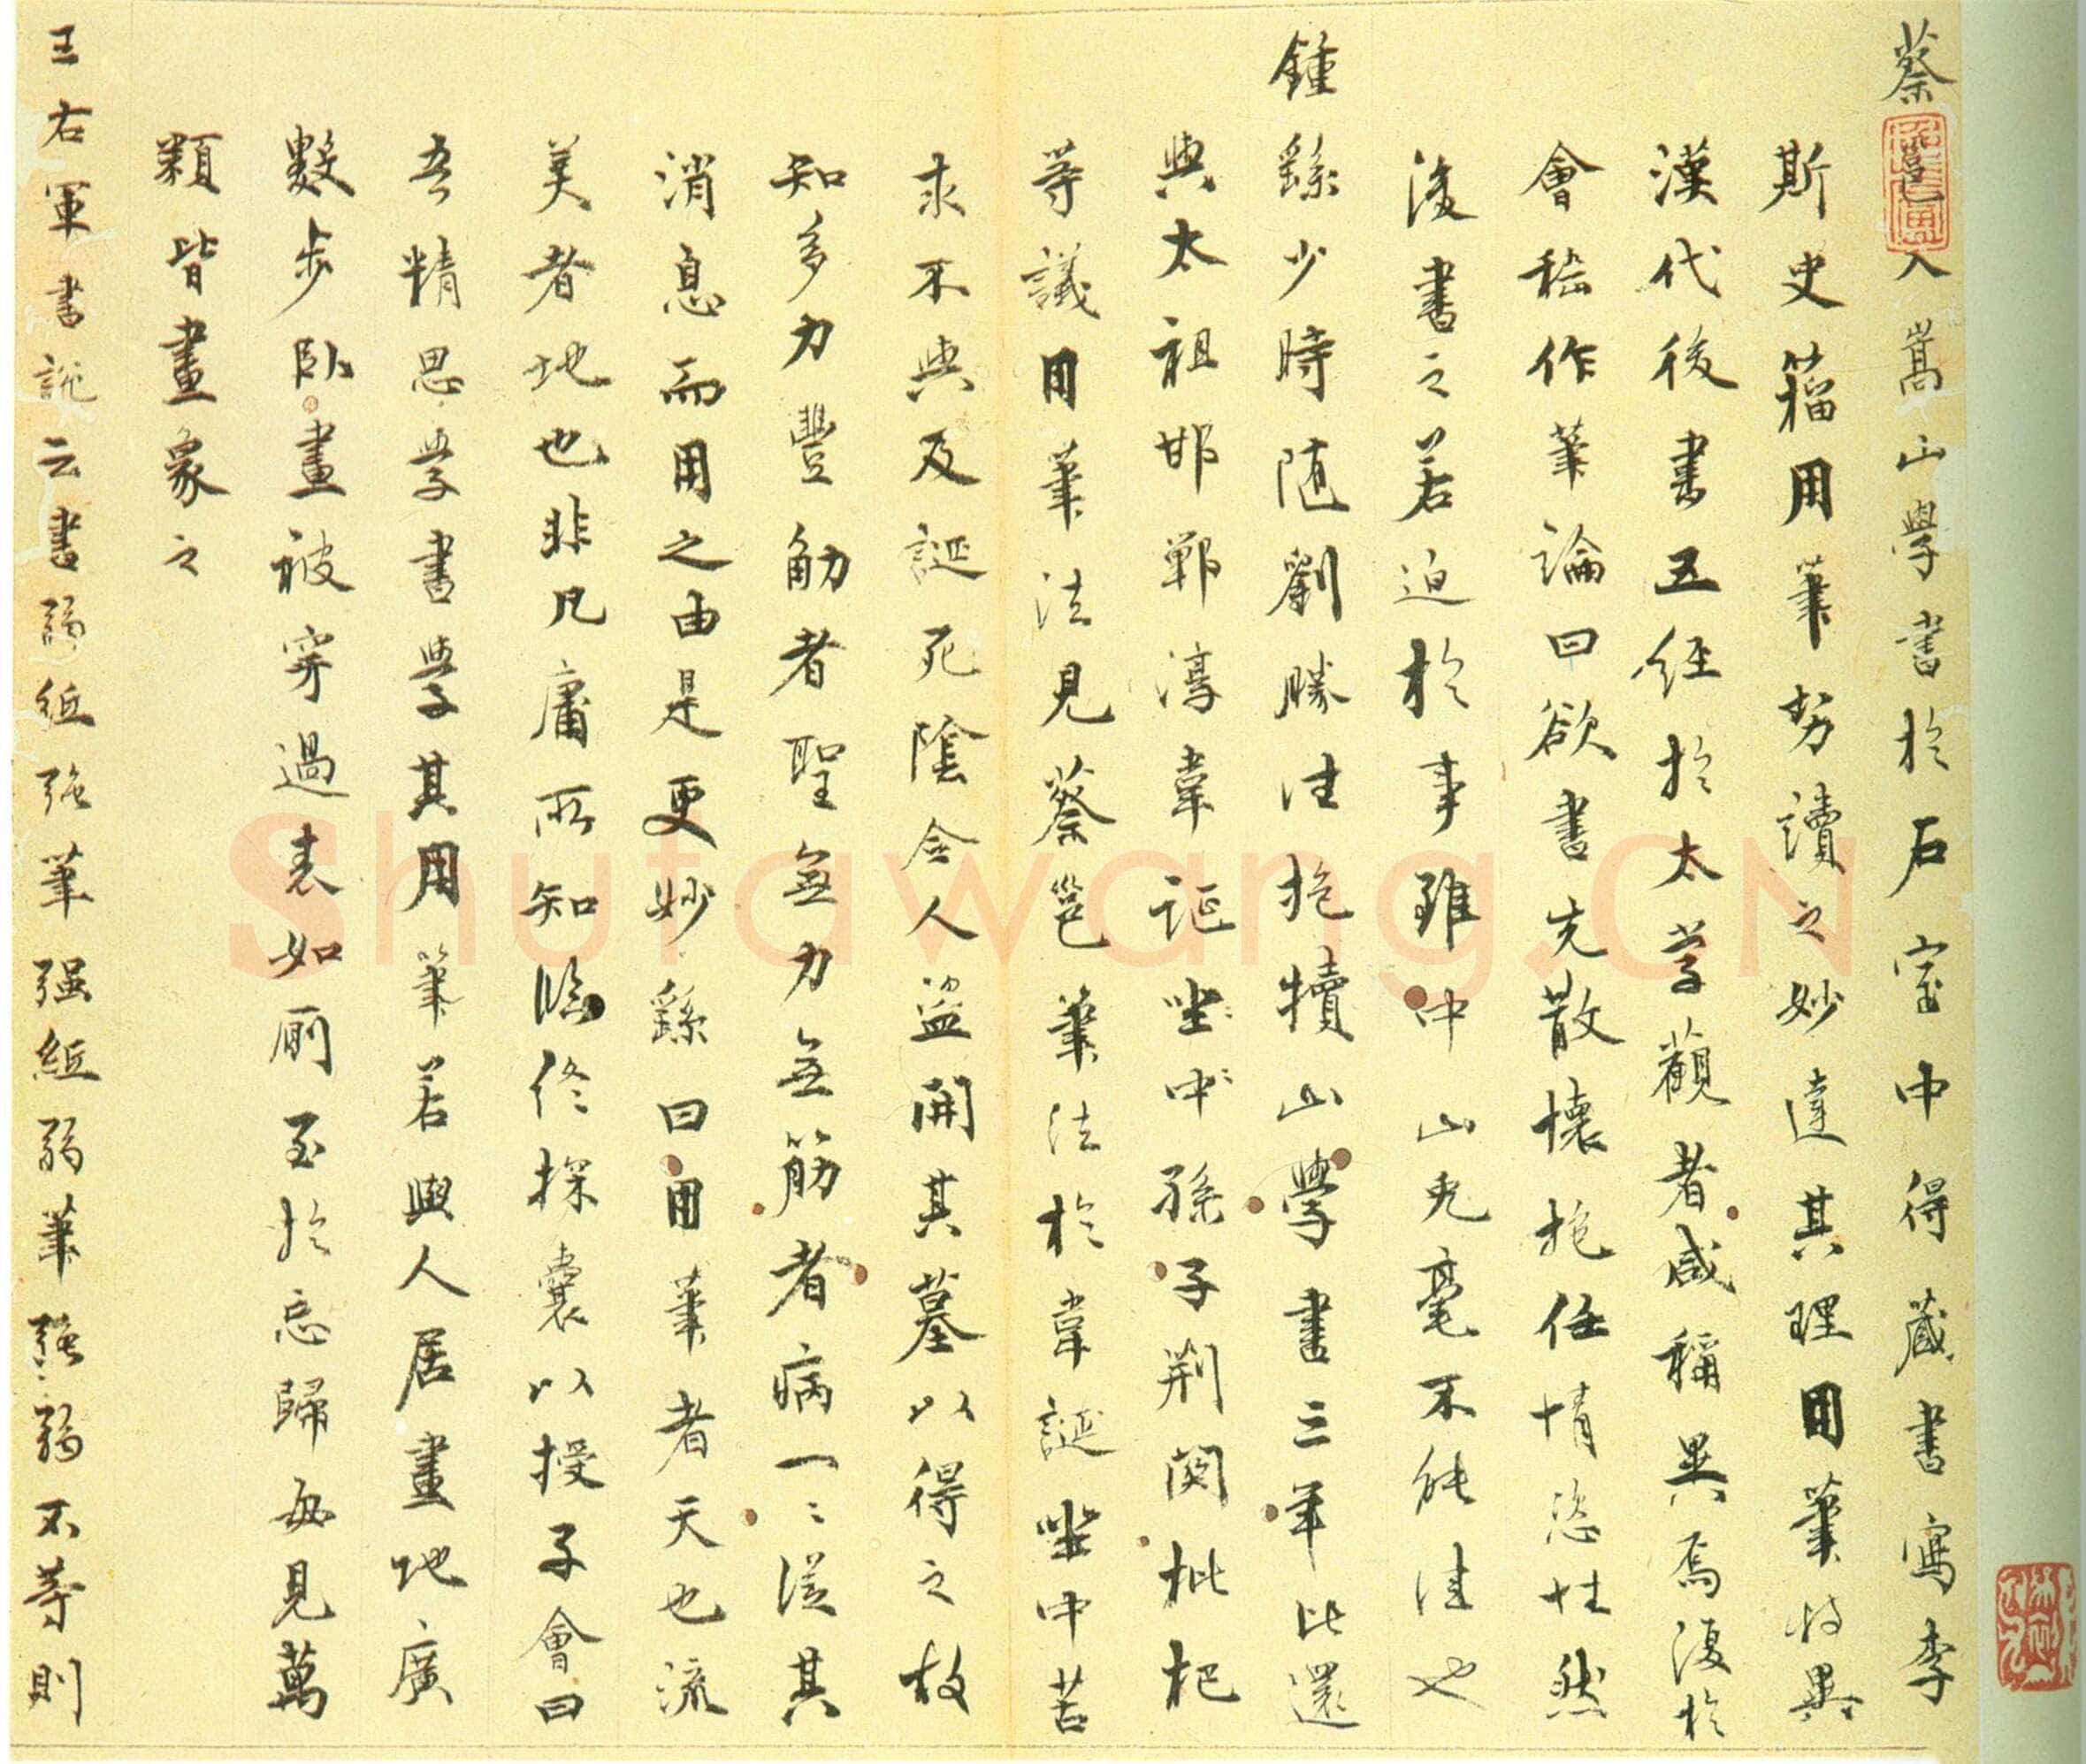 蔡邕入嵩山學書於石室中得蔵書寫李
斯史籀用筆勢讀之妙達其理用筆特異
漢代後書五經於太学觀者咸稱異焉復於
會嵇作筆論曰欲書先散懷抱任情恣性然
後書之若迫於事雖中山兔毫不能佳也
鍾繇少時随劉勝往抱犢山學書三年比還
與太祖邯鄲淳韋誕坐中孫子荆関枇杷
等議用筆法見蔡邕筆法於韋誕坐中苦
求不與及誕死陰令人盗開其墓以得之故
知多力豐觔者聖無力無筋者病一〻從其
消息而用之由是更妙繇曰用筆者天也流
美者地也非凡庸所知臨終探囊以授子會曰
吾精思学書學其用筆若與人居畫地廣
數步卧畫被穿過表如厠至於忘歸每見萬
類皆畫象之
王右軍書説云書弱紙强筆强紙弱筆强弱不等則
Shufawang.CN